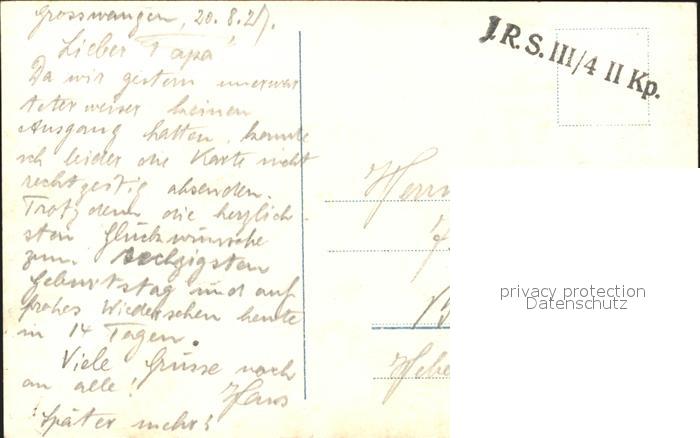 Grosswangen, 20.8.27.
Lieber Papa!
Da wir gestern unerwar
teterweise keinen
Ausgang hatten, konnte
ich leider die Karte nicht
rechtzeitig absenden.
Trotzdem die herzlich-
sten Glückwünsche
zum sechzigsten
Geburtstag und auf
frohes Wiedersehen heute
in 14 Tagen.
Viele Grüsse noch
an alle! Hans
Später mehr!
J.R.S. III/4 II Kp.
Herrn
privacy protection
Datenschutz